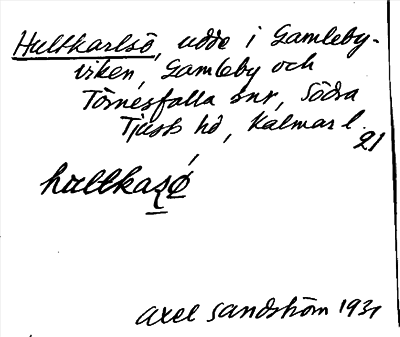 Hultkarlsö, udde i Gamleby-
viken, Gamleby och
Törnesfalla snr, Södra
Tjusts hd, Kalmar l.
21
Axel Sandström 1931